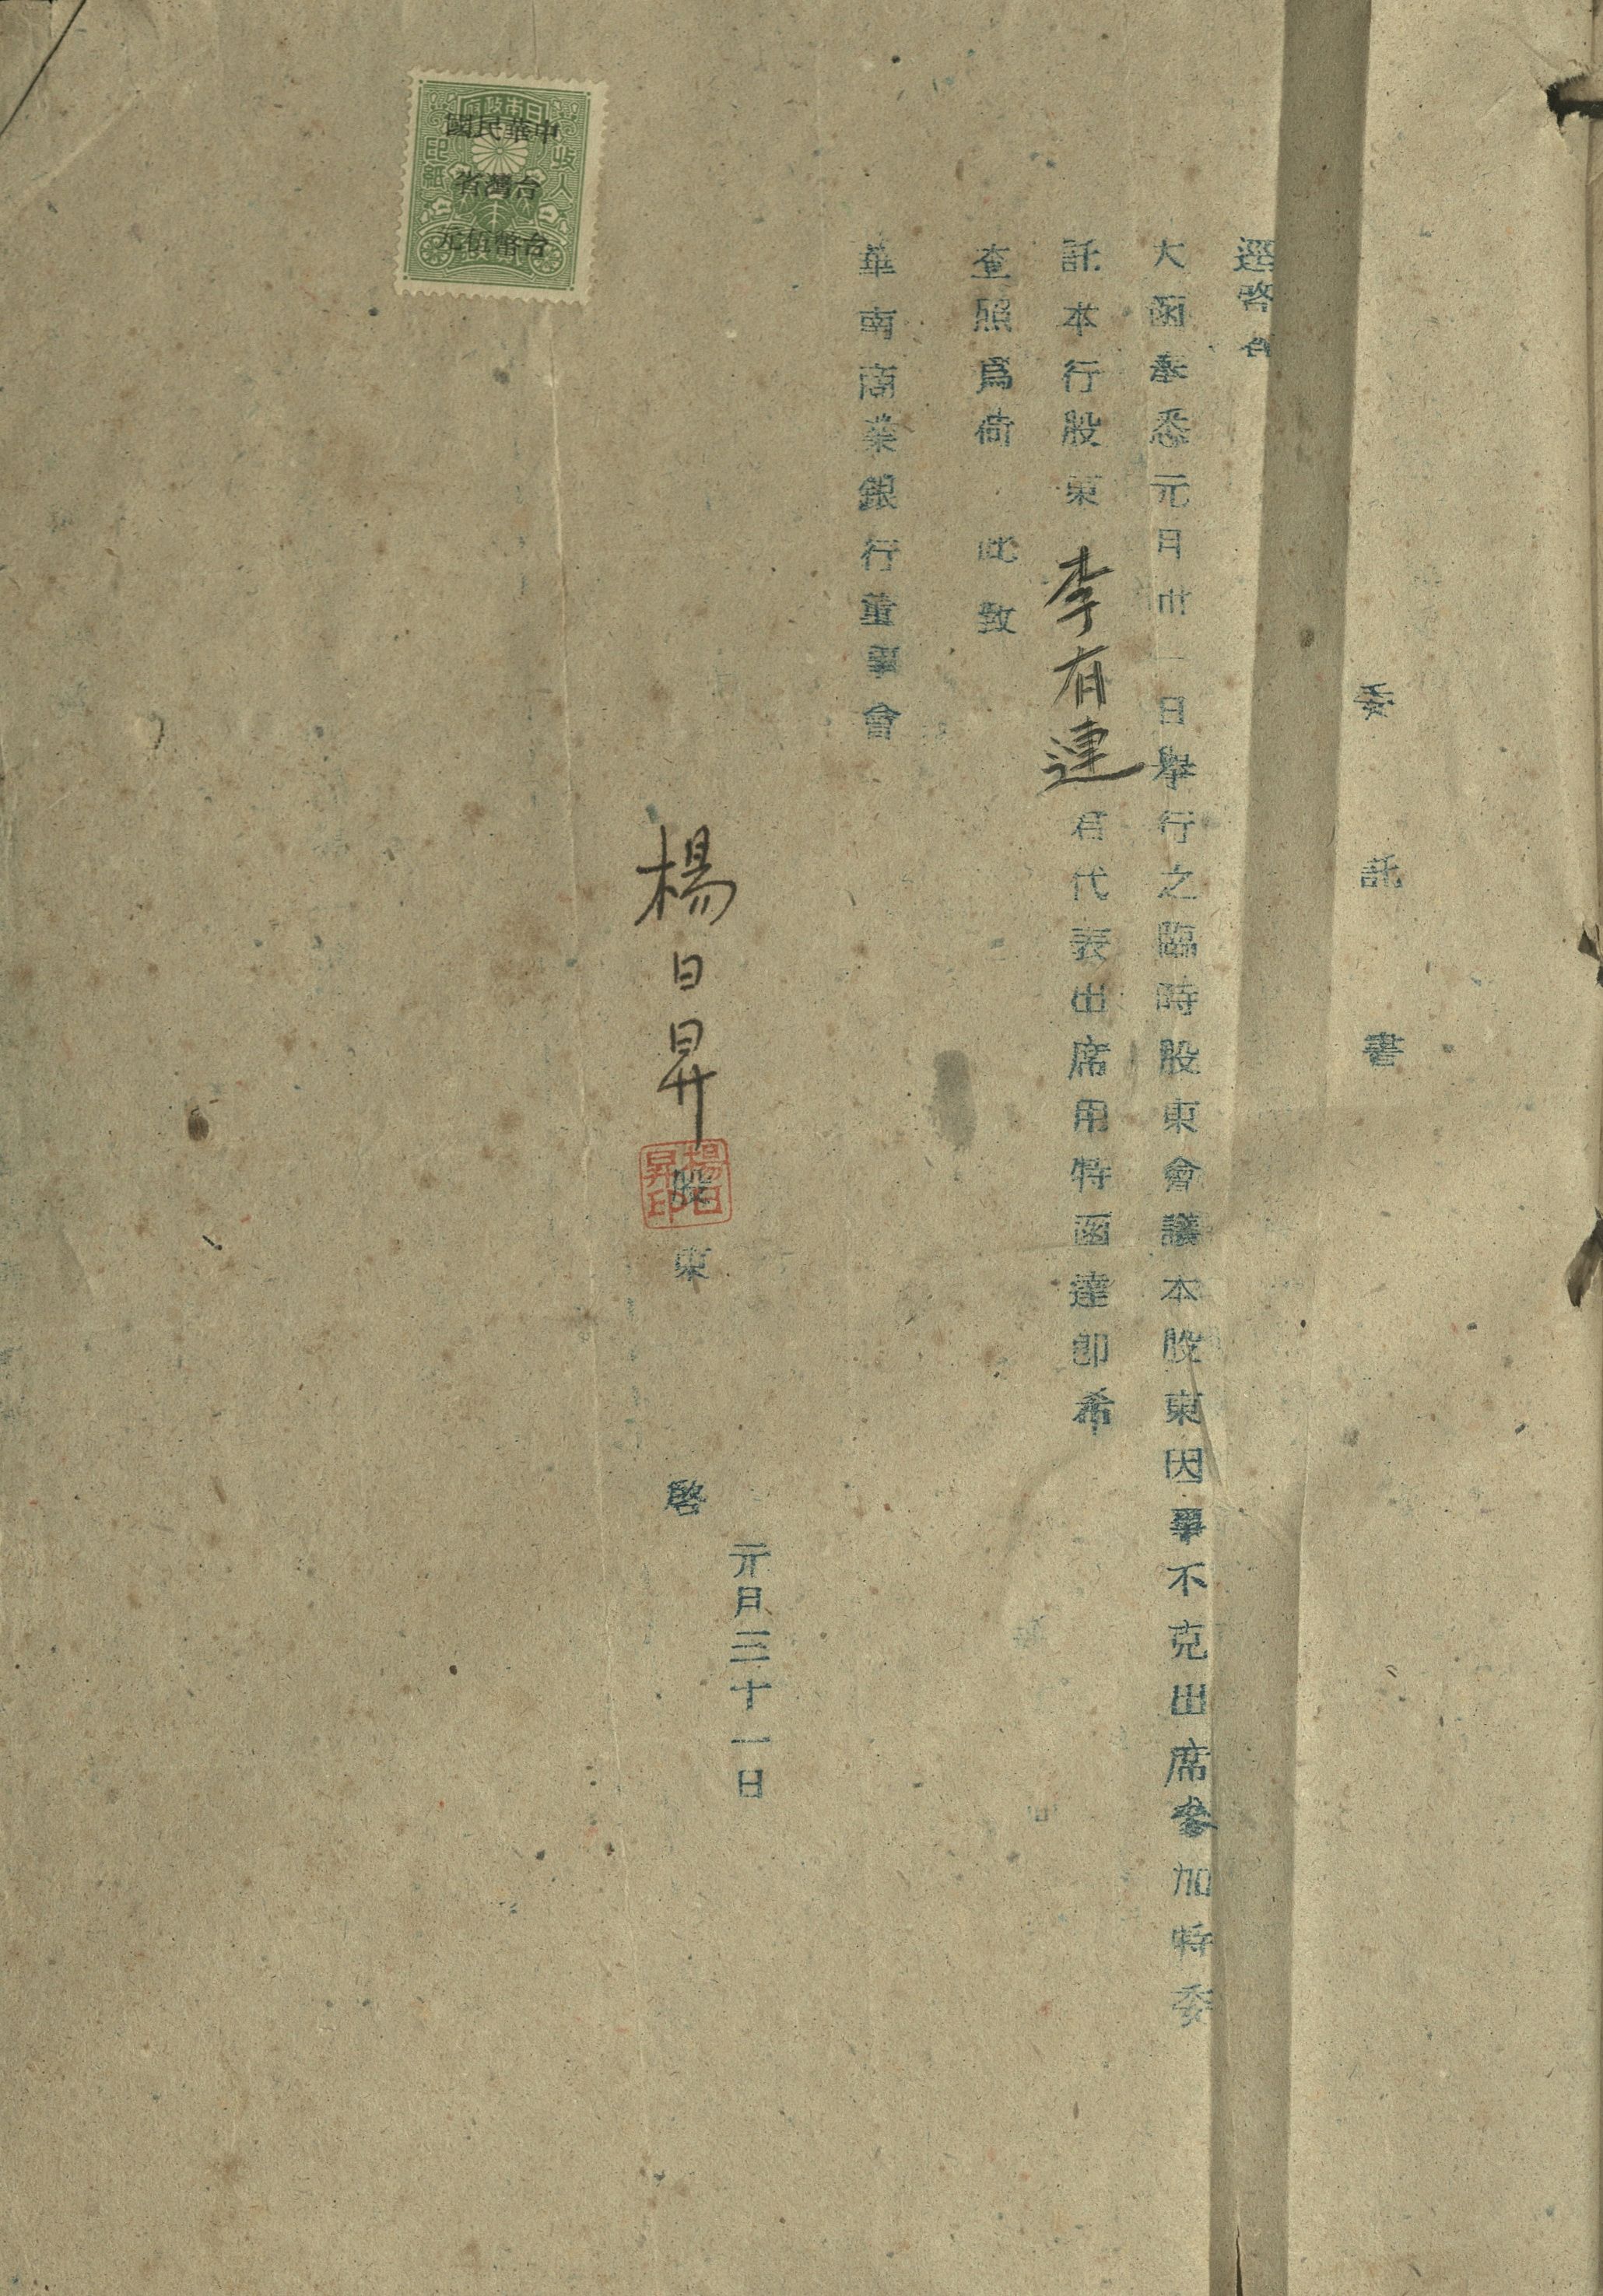 委託書
逕啓者
大函奉悉元月卅一日舉行之臨時股東會議本股東因事不克出席參加特委
託本行股東李有連君代表出席用特函達卽希
查照爲荷 此致
華南商業銀行董事會
元月三十一日
楊日昇股東 啓
楊日昇印
日本政府
收入印紙
中華民國
台灣省
台幣伍元